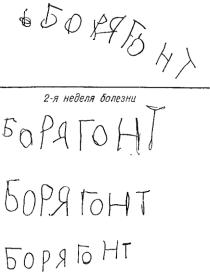 БОРЯГОНТ
2-я неделя болезни
БОРЯГОНТ
БОРЯГОНТ
БОРЯГОНТ